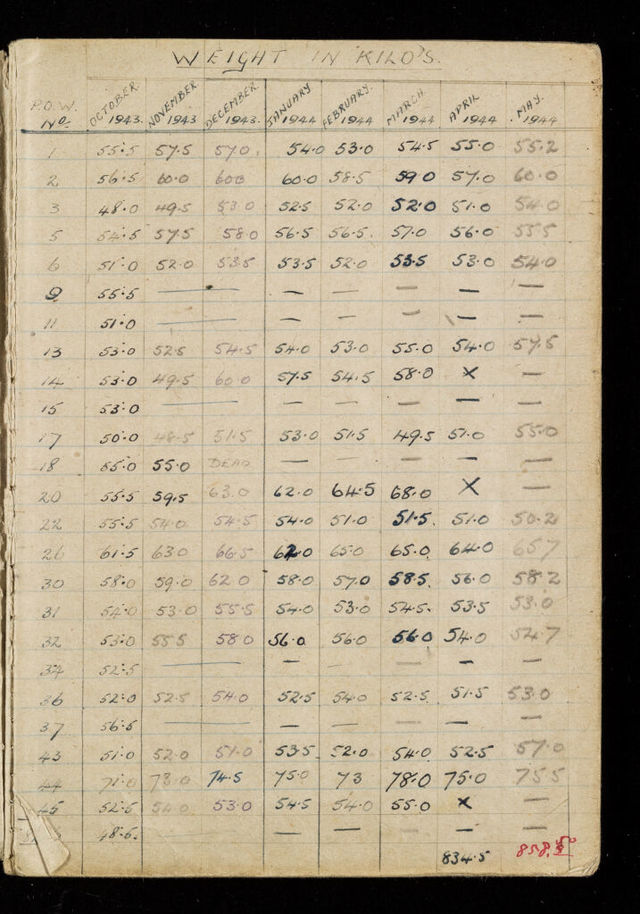 WEIGHT IN KILO'S.
P.O.W. No. OCTOBER 1943. NOVEMBER 1943 DECEMBER 1943. JANUARY 1944 FEBRUARY. 1944 MARCH. 1944 APRIL 1944 MAY. 1944
1 55.5 57.5 57.0. 54.0 53.0 54.5 55.0 55.2
2 56.5 60.0 60.0 60.0 58.5 59.0 57.0 60.0
3 48.0 49.5 53.0 52.5 52.0 52.0 51.0 54.0
5 54.5 57.5 58.0 56.5 56.5. 57.0 56.0 55.5
6 51.0 52.0 53.5 53.5 52.0 53.5 53.0 54.0
9 55.5 — — — — — — —
11 51.0 — — — — — — —
13 53.0 52.5 54.5 54.0 53.0 55.0 54.0 57.5
14 53.0 49.5 60.0 57.5 54.5 58.0 X —
15 53.0 — — — — — — —
17 50.0 48.5 51.5 53.0 51.5 49.5 51.0 55.0
18 55.0 DEAD — — — — —
20 55.5 59.5 63.0 62.0 64.5 68.0 X —
22 55.5 54.0 54.5 54.0 51.0 51.5. 51.0 50.2
26 61.5 63.0 66.5 62.0 65.0 65.0. 64.0 65.7
30 58.0 59.0 62.0 58.0 57.0 58.5. 56.0 58.2
31 54.0 53.0 55.5 54.0 53.0 54.5. 53.5 53.0
32 53.0 55.5 58.0 56.0 56.0 56.0 54.0 54.7
34 52.5 — — — — — — —
36 52.0 52.5 54.0 52.5 54.0 52.5. 51.5 53.0
37 56.5 — — — — — — —
43 51.0 52.0 51.0 53.5 52.0 54.0 52.5 57.0
44 71.0 73.0 74.5 75.0 73 78.0 75.0 75.5
45 52.5 54.0 53.0 54.5 54.0 55.0 X —
48.6. — — — — — — —
834.5